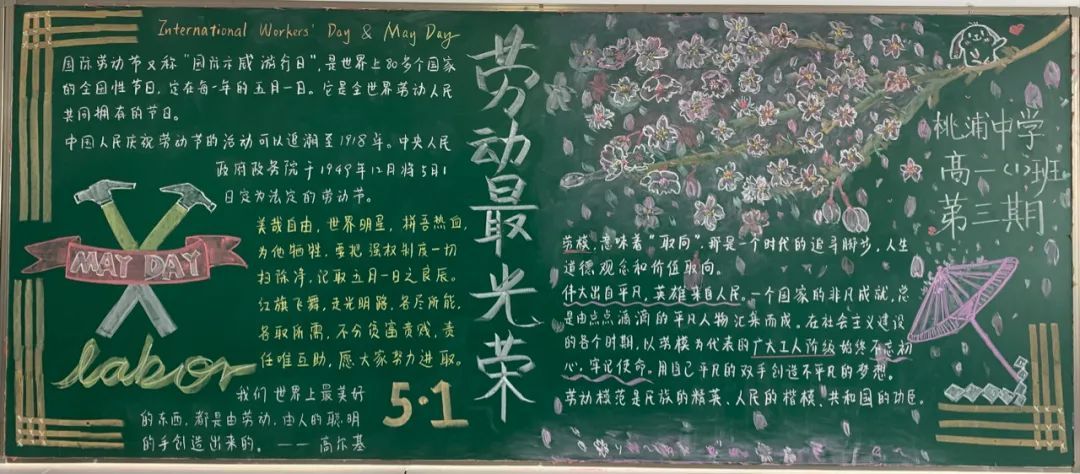 International Workers' Day & May Day
国际劳动节又称“国际示威游行日”，是世界上80多个国家
的全国性节日，定在每一年的五月一日。它是全世界劳动人民
共同拥有的节日。
中国人民庆祝劳动节的活动可以追溯至1918年。中央人民
政府政务院于1949年12月将5月1
日定为法定的劳动节。
美哉自由，世界明星，拼吾热血，
为他牺牲，要把强权制度一切
扫除净，记取五月一日之良辰。
红旗飞舞，走光明路，各尽所能，
各取所需，不分贫富贵贱，责
任唯互助，愿大家努力进取。
MAY DAY
labor
我们世界上最美好
的东西，都是由劳动、由人的聪明
的手创造出来的。——高尔基
5·1
劳动最光荣
桃浦中学
高一（1）班
第三期
劳模，意味着“取向”，那是一个时代的追寻脚步，人生
道德观念和价值取向。
伟大出自平凡，英雄来自人民。一个国家的非凡成就，总
是由点点滴滴的平凡人物汇集而成。在社会主义建设
的各个时期，以劳模为代表的广大工人阶级始终不忘初
心，牢记使命。用自己平凡的双手创造不平凡的梦想。
劳动模范是民族的精英、人民的楷模、共和国的功臣。